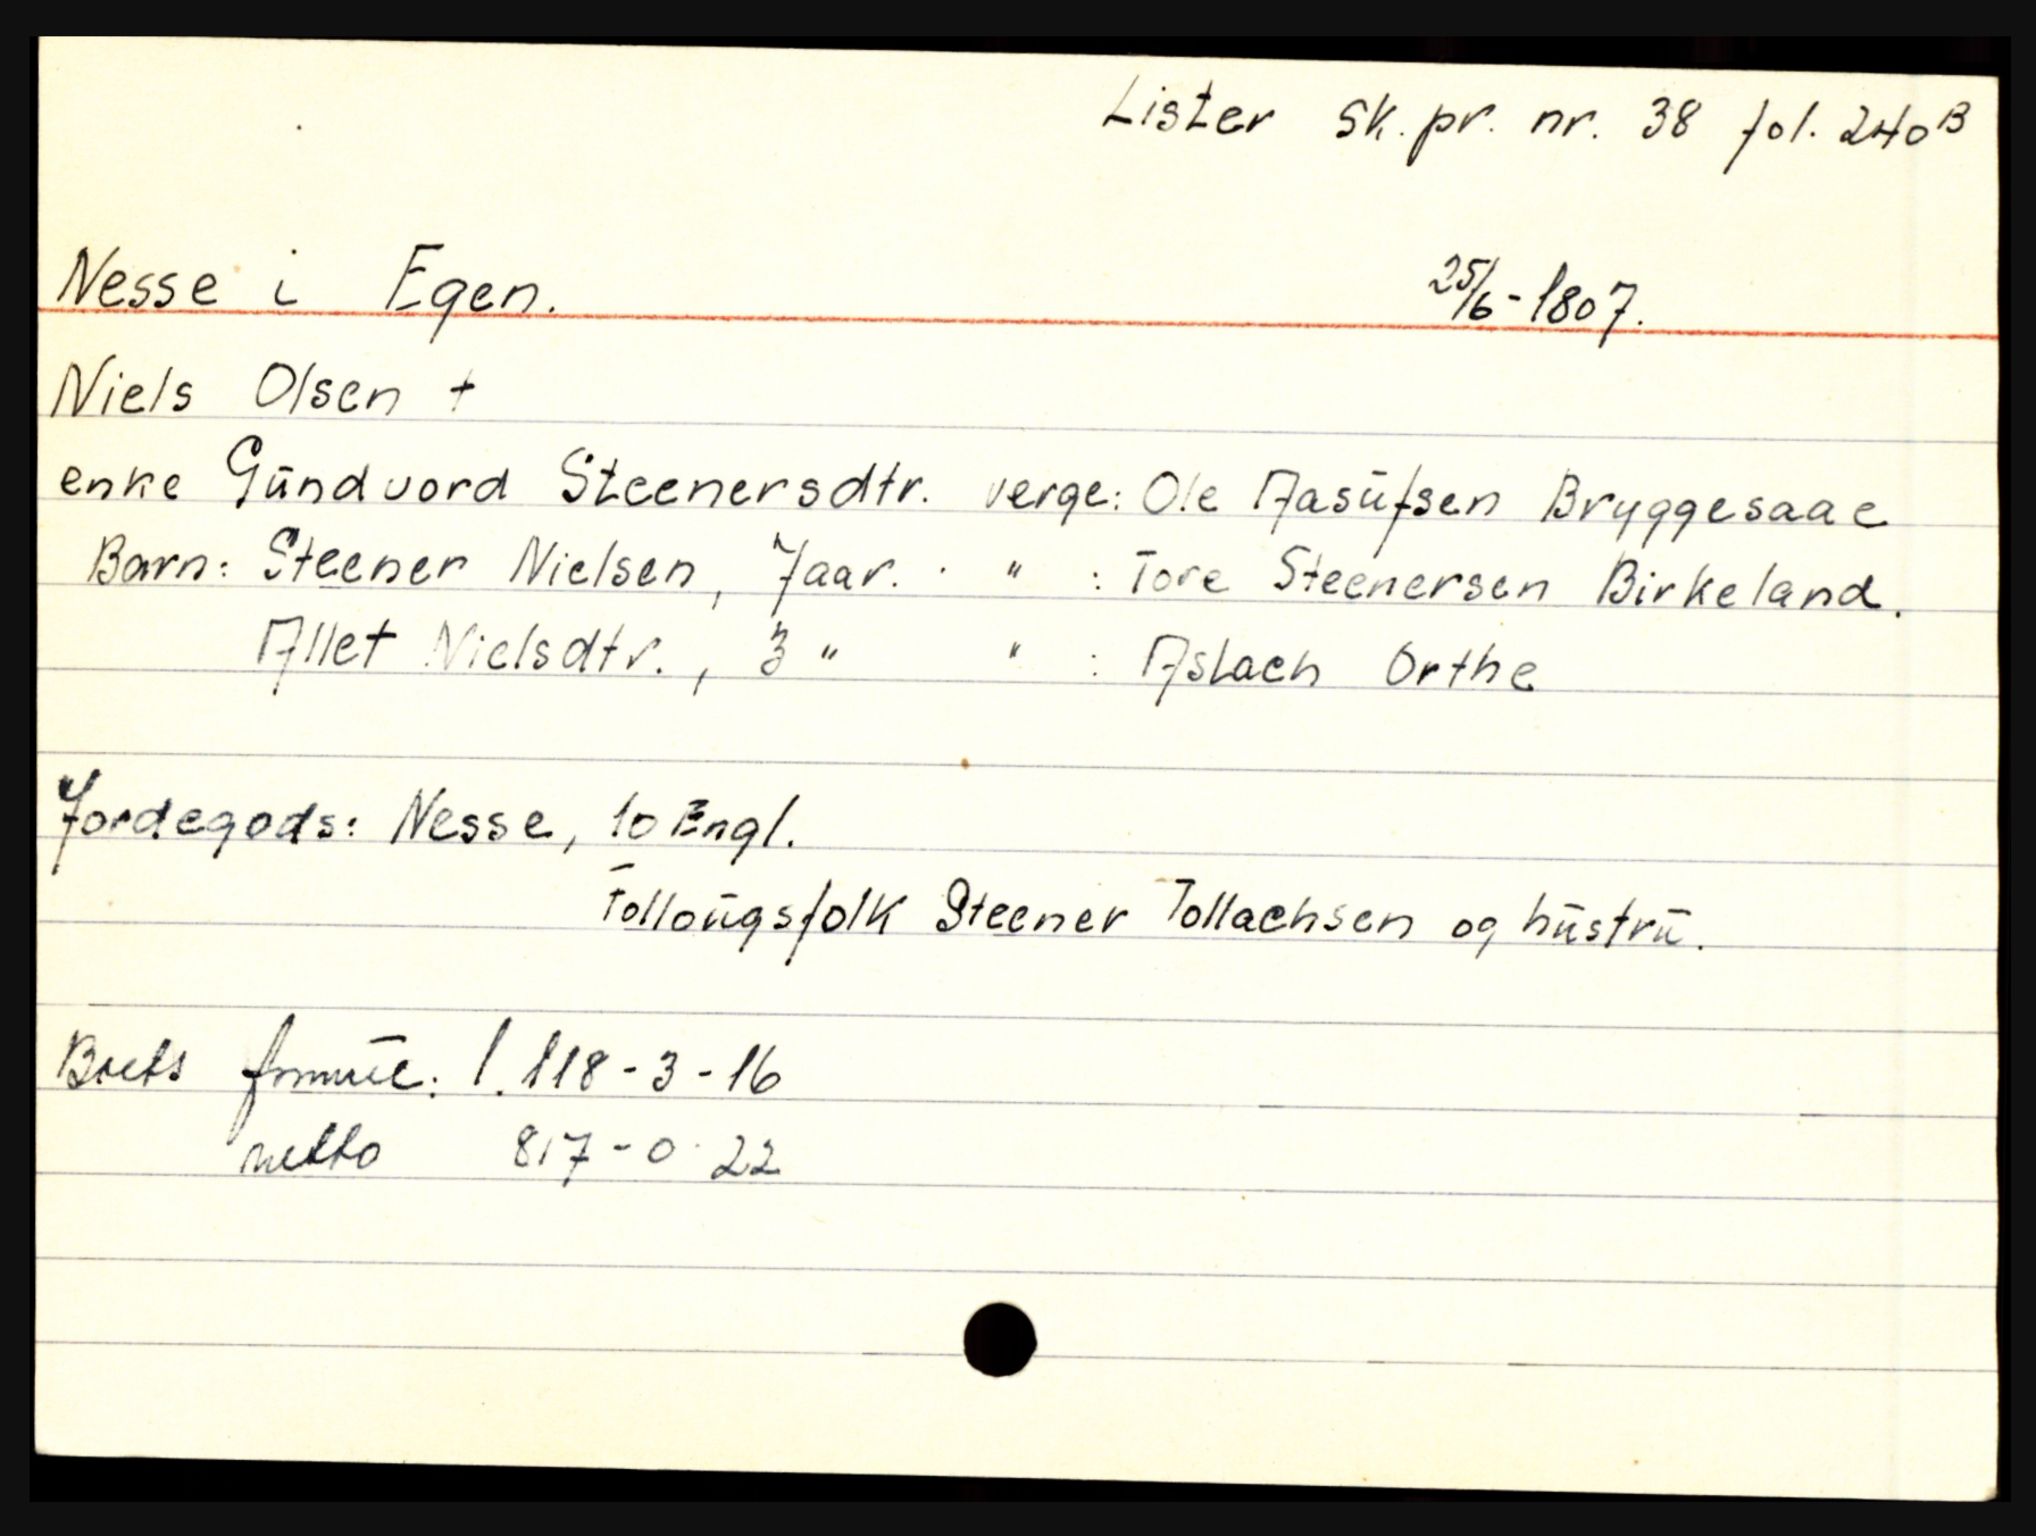 Lister sk. pr. nr. 38 fol. 240 B
Nesse i Egen. 25/6-1807.
Niels Olsen +
enke Gündvord Steenersdtr. verge: Ole Aasüfsen Bryggesaae
Barn: Steener Nielsen, 7 aar. " : Tore Steenersen Birkeland.
Allet Nielsdtr., 3 " " : Aslach Orthe
Jordegods: Nesse, 10 Engl.
Folloügsfolk Steener Tollachsen og hüstrü.
Boets formüe: 1.118-3-16
netto 817-0-22